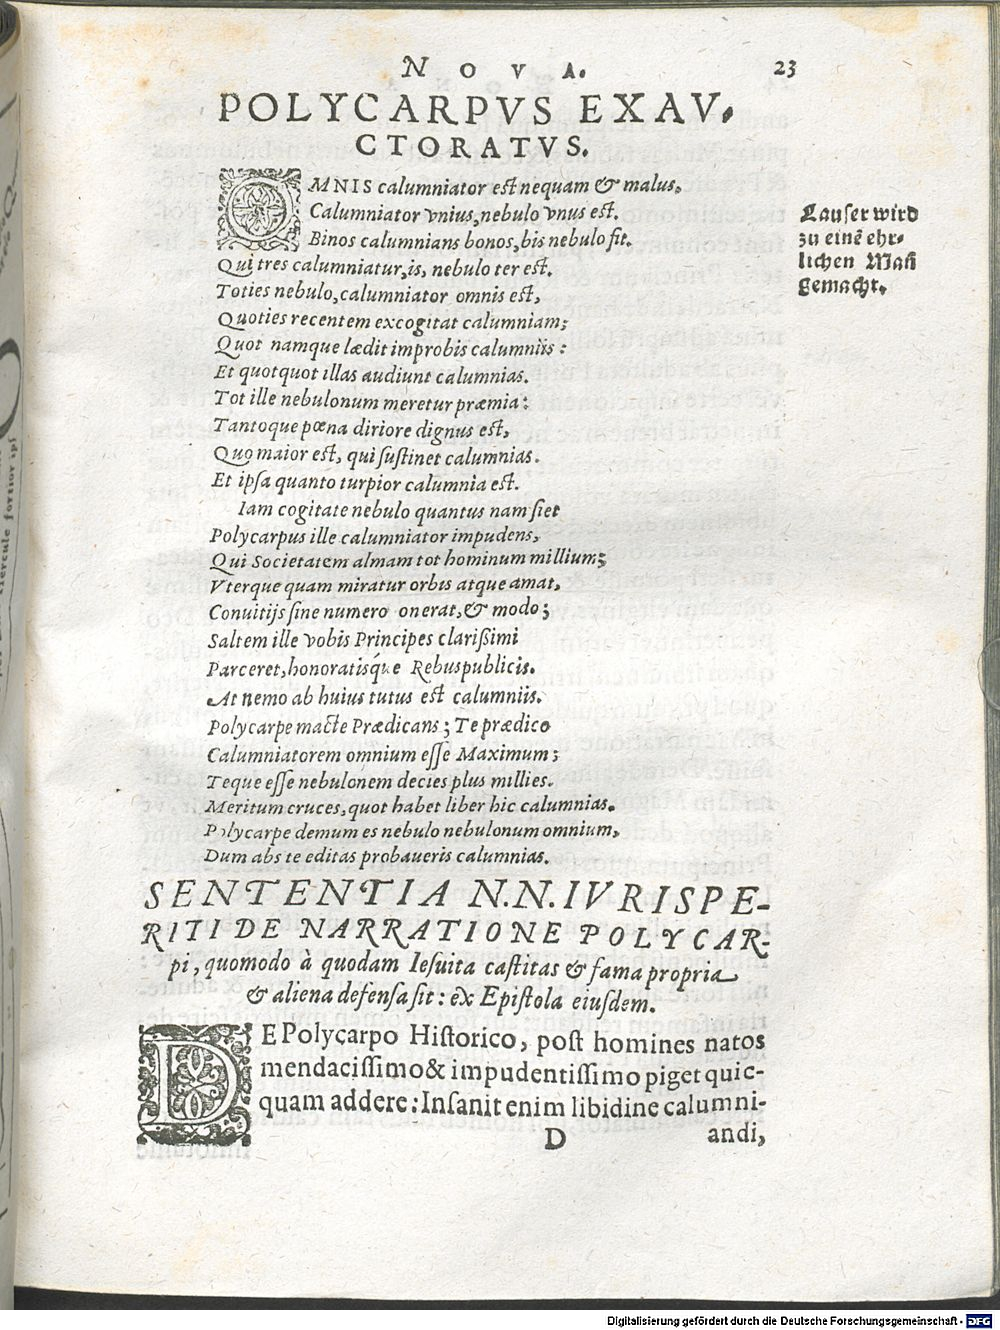 NOVA. 23
POLYCARPVS EXAV-
CTORATVS.
OMNIS calumniator est nequam & malus.
Calumniator vnius, nebulo vnus est.
Binos calumnians bonos, bis nebulo fit.
Qui tres calumniatur, is, nebulo ter est.
Toties nebulo, calumniator omnis est,
Quoties recentem excogitat calumniam;
Quot namque lædit improbis calumniis:
Et quotquot illas audiunt calumnias.
Tot ille nebulonum meretur præmia:
Tantoque pœna diriore dignus est,
Quo maior est, qui sustinet calumnias.
Et ipsa quanto turpior calumnia est.
Iam cogitate nebulo quantus nam siet
Polycarpus ille calumniator impudens,
Qui Societatem almam tot hominum millium;
Vterque quam miratur orbis atque amat,
Conuitijs sine numero onerat, & modo;
Saltem ille vobis Principes clarißimi
Parceret, honoratisq́ue Rebuspublicis.
At nemo ab huius tutus est calumniis.
Polycarpe macte Prædicans; Te prædico
Calumniatorem omnium esse Maximum;
Teque esse nebulonem decies plus millies.
Meritum cruces, quot habet liber hic calumnias.
Polycarpe demum es nebulo nebulonum omnium,
Dum abs te editas probaueris calumnias.
Lauser wird
zu einē ehr-
lichen Mañ
gemacht.
SENTENTIA N.N. IVRISPE-
RITI DE NARRATIONE POLYCAR-
pi, quomodo à quodam Iesuita castitas & fama propria
& aliena defensa sit: ex Epistola eiusdem.
DE Polycarpo Historico, post homines natos
mendacissimo & impudentissimo piget quic-
quam addere: Insanit enim libidine calumni-
D andi,
Hercule fortior ips
Digitalisierung gefördert durch die Deutsche Forschungsgemeinschaft - DFG